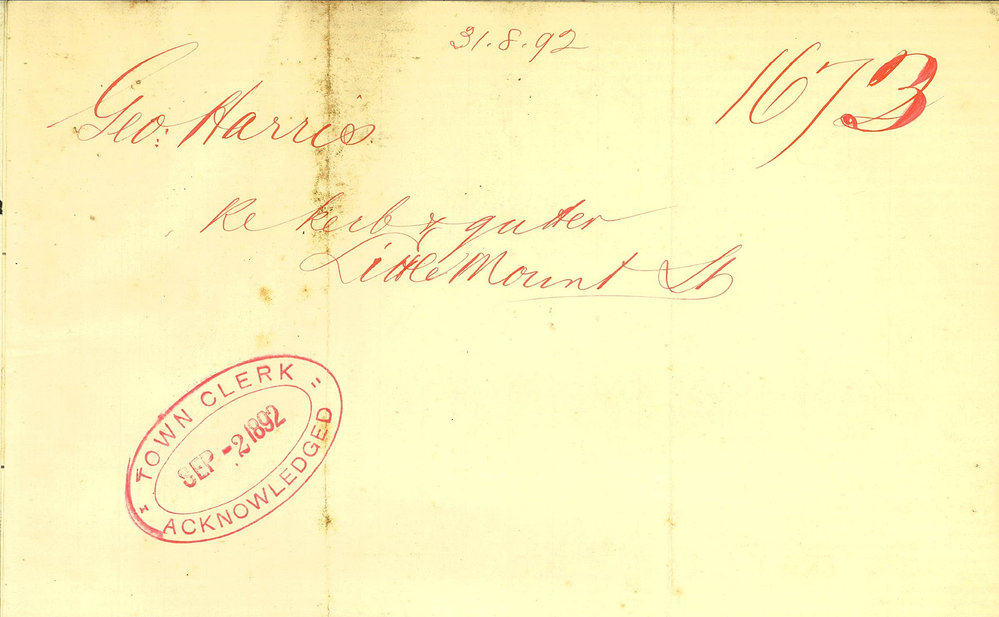 31.8.92
1673
Geo: Harris
Re kerb & gutter
Little Mount St
TOWN CLERK
SEP -2 1892
ACKNOWLEDGED